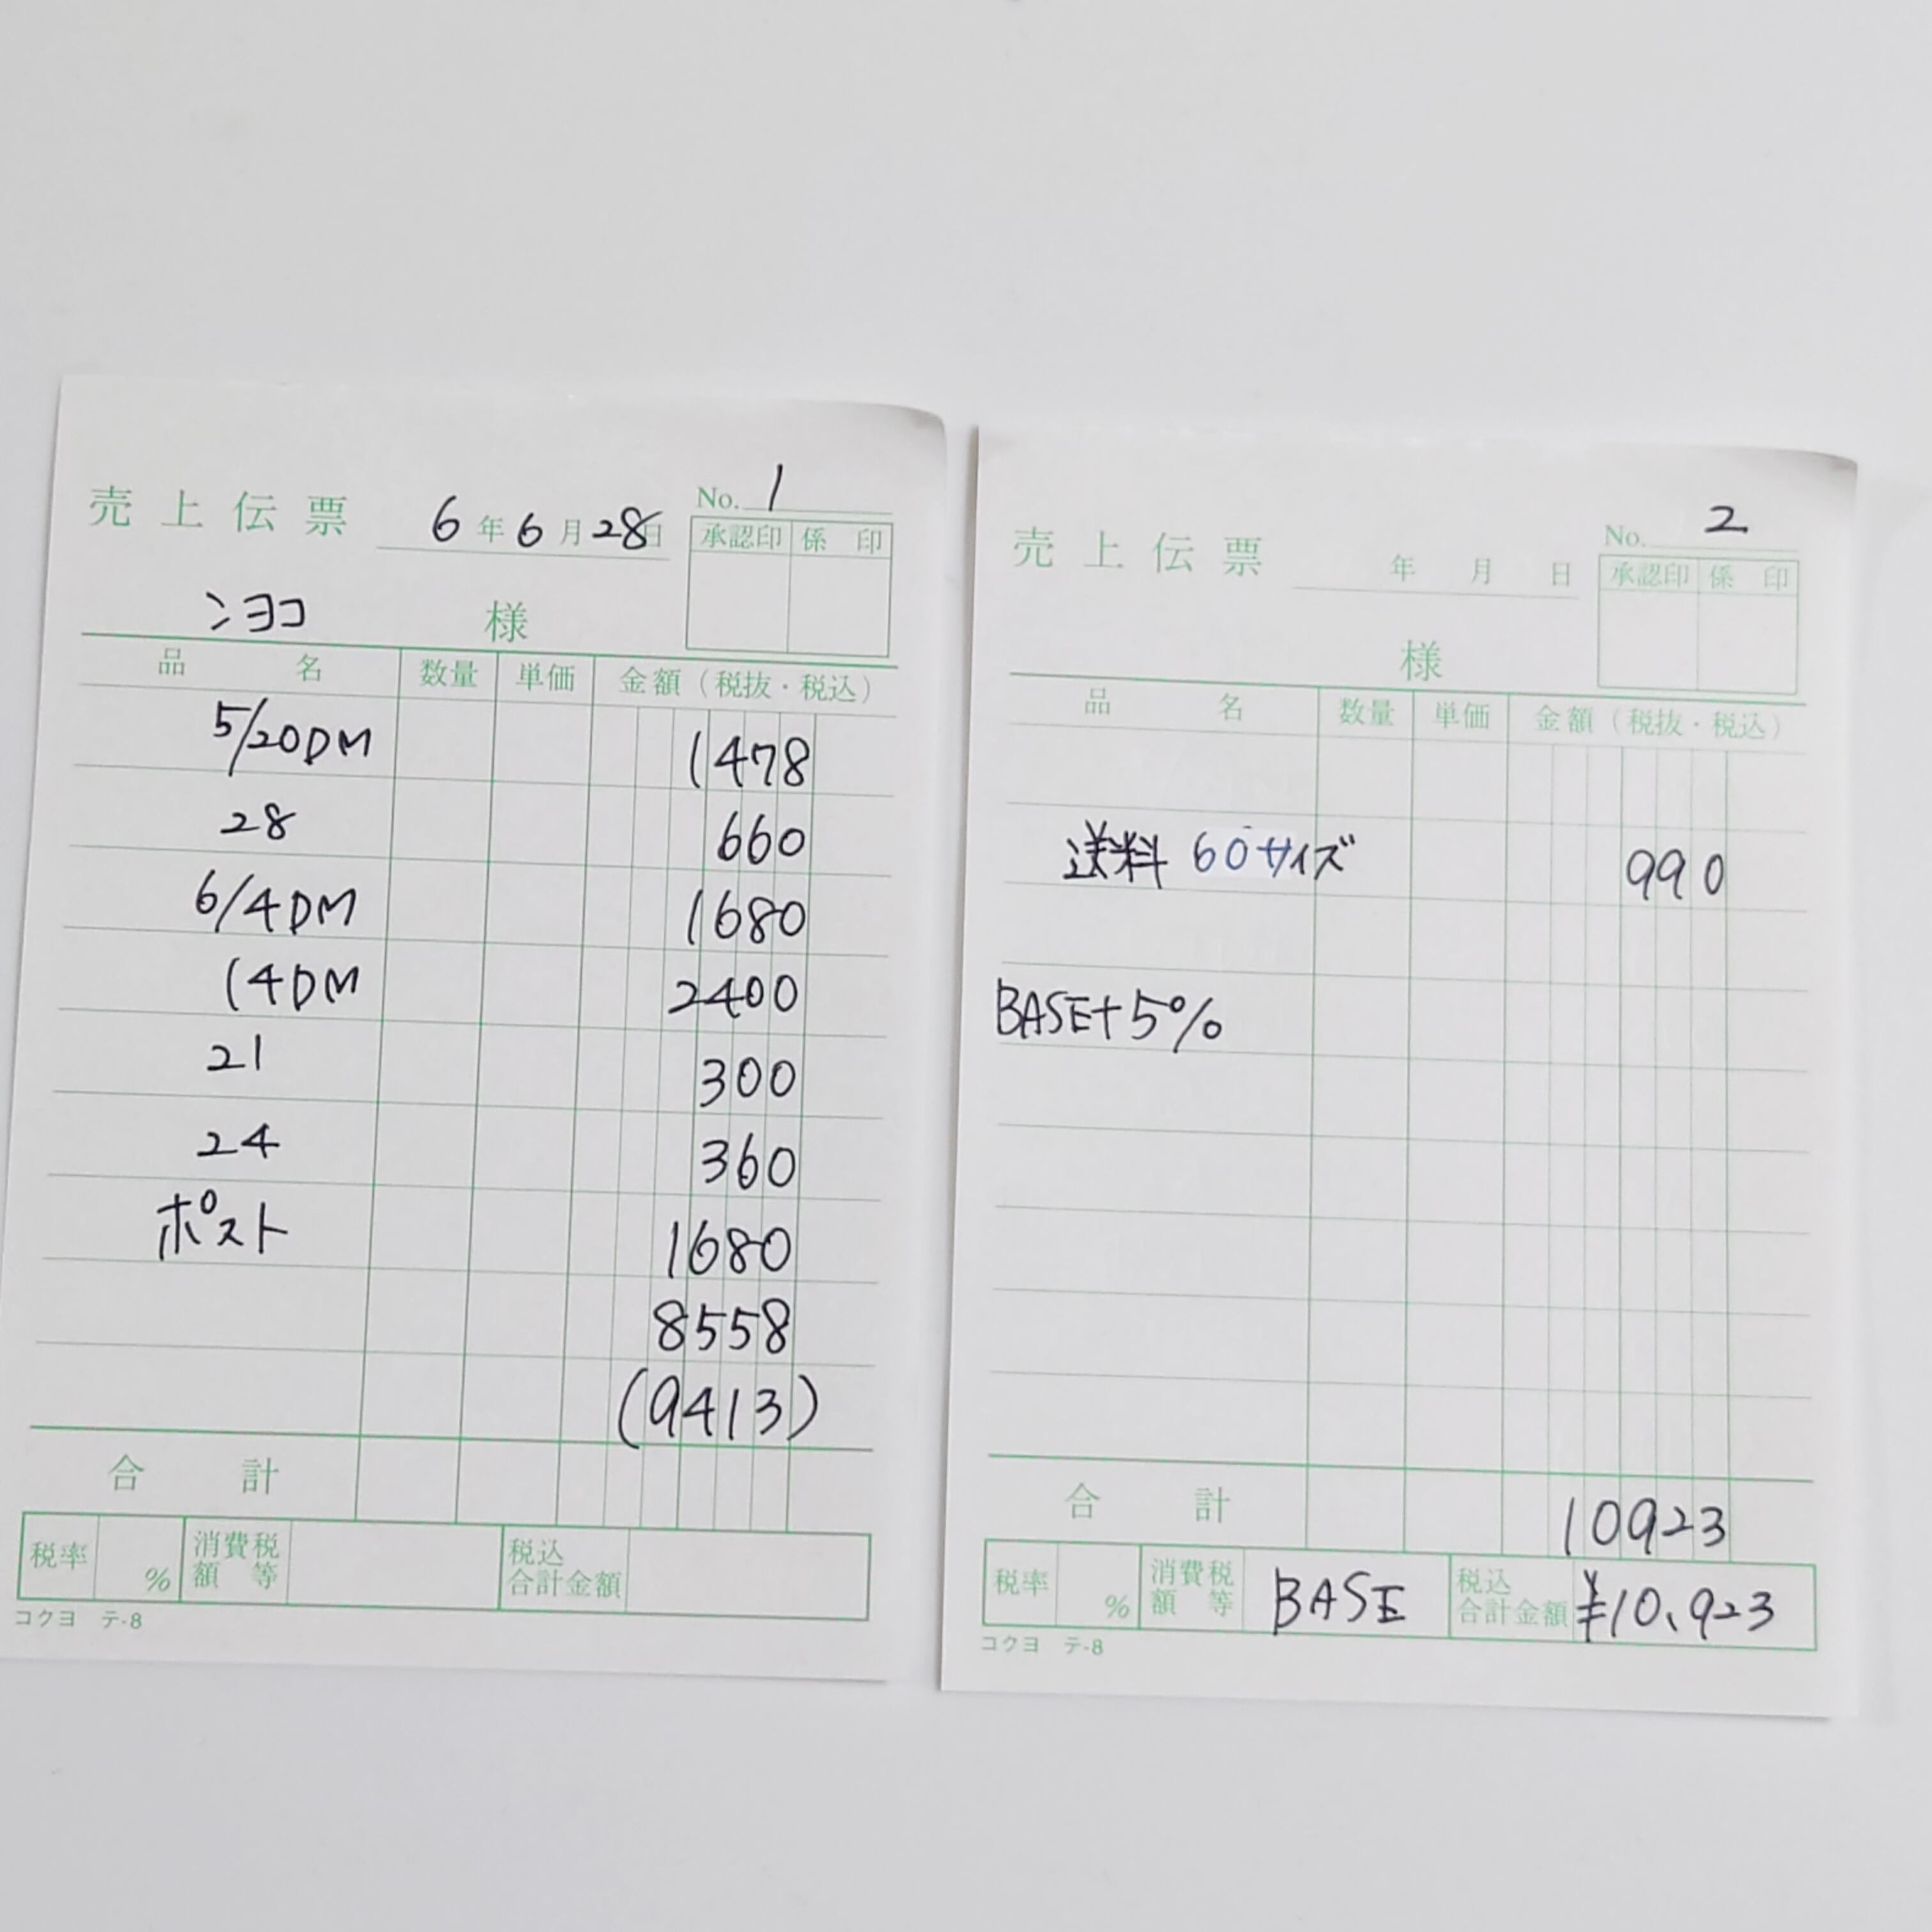 売上伝票 6年6月28日 No. 1
承認印 係印
ショコ 様
品名 数量 単価 金額（税抜・税込）
5/20DM 1478
28 660
6/4DM 1680
14DM 2400
21 300
24 360
ポスト 1680
8558
(9413)
合計
税率 % 消費税額等 税込合計金額
コクヨ テ-8
売上伝票 年 月 日 No. 2
承認印 係印
様
品名 数量 単価 金額（税抜・税込）
送料 60サイズ 990
BASE+5%
合計 10923
税率 % 消費税額等 BASE 税込合計金額 ¥10,923
コクヨ テ-8